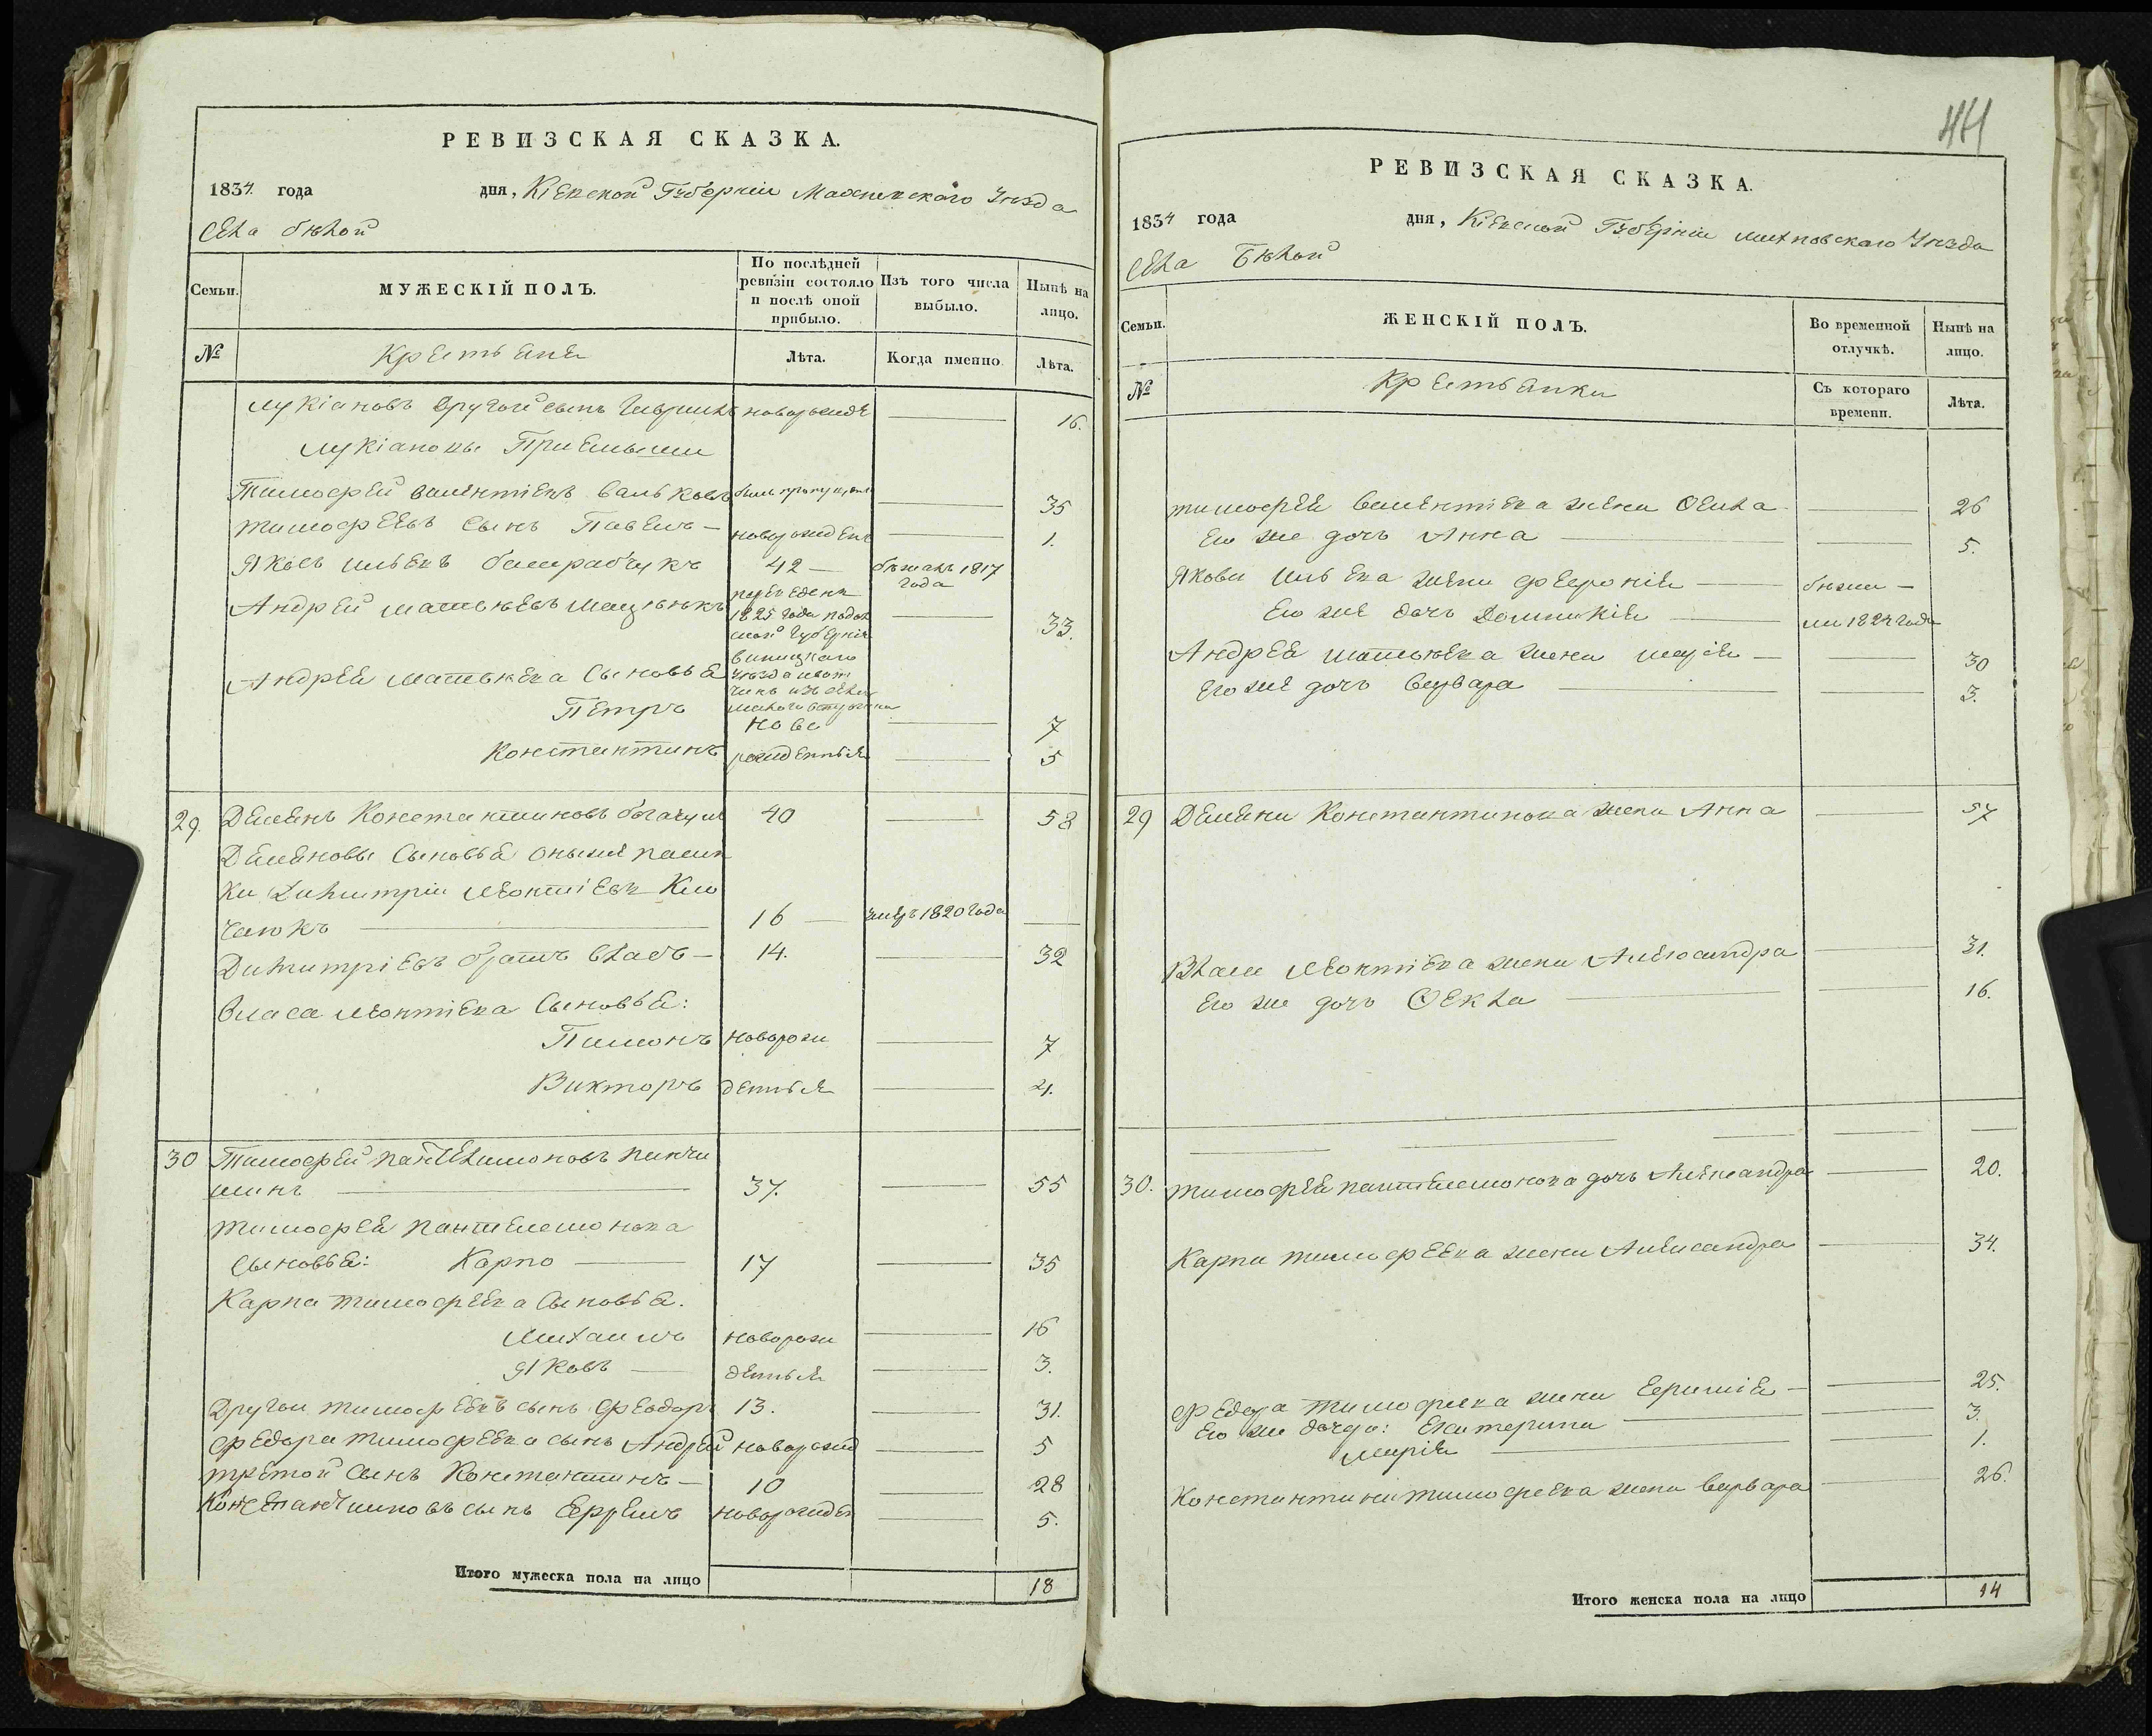 РЕВИЗСКАЯ СКАЗКА.
1834 года дня, Кіевской Губерніи Махновского Уѣзда
Села бѣлой
Семьи.
МУЖЕСКІЙ ПОЛЪ.
По послѣдней ревизіи состояло и послѣ оной прибыло.
Изъ того числа выбыло.
Нынѣ на лицо.
№
Крестьяне
Лѣта.
Когда именно.
Лѣта.
Лукіановъ другой сынъ новорожде 16.
Лукіановы Приемыши
Тимофей валентіевъ 35
тимофеевъ сынъ Павелъ новорожденъ 1.
Яковъ 42 бѣжалъ 1817 года
Андрей матвѣевъ 33.
1825 года подол
ской губерніи
виницкаго
уѣзда
Андрея матвѣева Сыновья
Петръ ново 7
Константинъ рожденныя 5
29. Демянъ Константиновъ 40 58
Демяновы Сыновья пасин
ки Димитрій Леонтіевъ Кло
чокъ 16 умеръ 1820 года
Димитріевъ братъ власъ 14. 32
Власа Леонтіева Сыновья:
Пимонъ новорож 7
Викторъ денныя 4.
30 Тимофей пантелимоновъ
37. 55
тимофея пантелемонова
Сыновья: Карпо 17 35
Карпа тимофеева Сыновья.
Михаилъ новорож 16
Яковъ денныя 3.
Другой тимофеевъ сынъ Феодоръ 13. 31.
Федора тимофеева сынъ Андрей новорожд 5
третой Сынъ Константинъ 10 28
Константиновъ сынъ Ефремъ новорожден 5.
Итого мужеска пола на лицо 18
44
РЕВИЗСКАЯ СКАЗКА.
1834 года дня, Кіевской Губерніи махновскаго Уѣзда
Села Бѣлой
Семьи.
ЖЕНСКІЙ ПОЛЪ.
Во временной отлучкѣ.
Нынѣ на лицо.
№
Крестьянки
Съ котораго времени.
Лѣта.
тимофея валентіева жена Фекла 26
Его же дочь Анна 5.
Якова жена феврония бѣжа
Его же дочь Доминикія ли 1824 года
Андрея матвѣева жена марія 30
Его же дочь варвара 3.
29 Демяна Константинова жена Анна 57
Власа Леонтіева жена Александра 31.
Его же дочь Фекла 16.
30. тимофея пантелемонова дочь Александра 20.
Карпа тимофеева жена Александра 34.
Федора тимофеева жена Ефимія 25.
Его же дочери: Екатерина 3.
марія 1.
Константина тимофеева жена варвара 26.
Итого женска пола на лицо 14